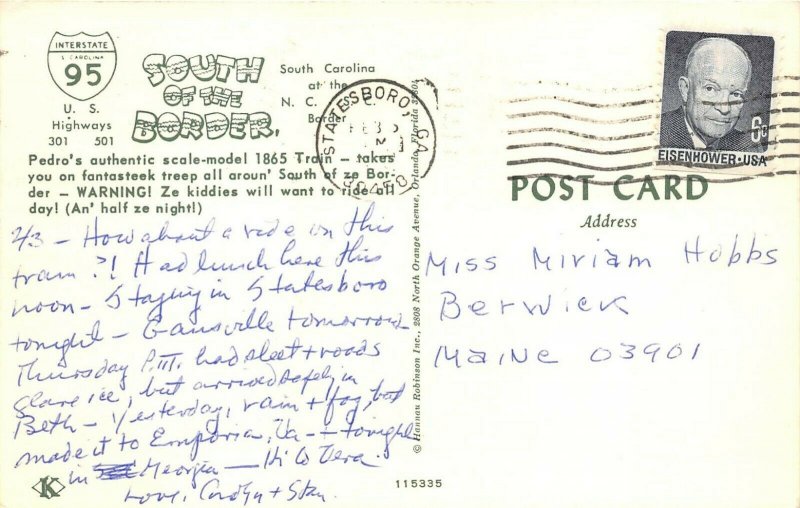 INTERSTATE
S CAROLINA
95
U. S.
Highways
301 501
SOUTH
OF THE
BORDER.
South Carolina
at the
N. C.
Border
STATESBORO, GA
FEB
EISENHOWER·USA
6c
Pedro's authentic scale-model 1865 Train — takes
you on fantasteek treep all aroun' South of ze Bor-
der — WARNING! Ze kiddies will want to ride all
day! (An' half ze night!)
POST CARD
Address
2/3 — How about a ride on this
train?! Had lunch here this
noon — Staying in Statesboro
tonight — Gainsville tomorrow —
Thursday P.M. had sleet + roads
glare ice, but arrived safely in
Beth — Yesterday, rain + fog, but
made it to Emporia, Va — + tonight
in Georgia — Hi to Vera.
Love, Carolyn + Stan.
Miss Miriam Hobbs
Berwick
Maine 03901
© Hannau Robinson Inc., 2808 North Orange Avenue, Orlando, Florida
K
115335